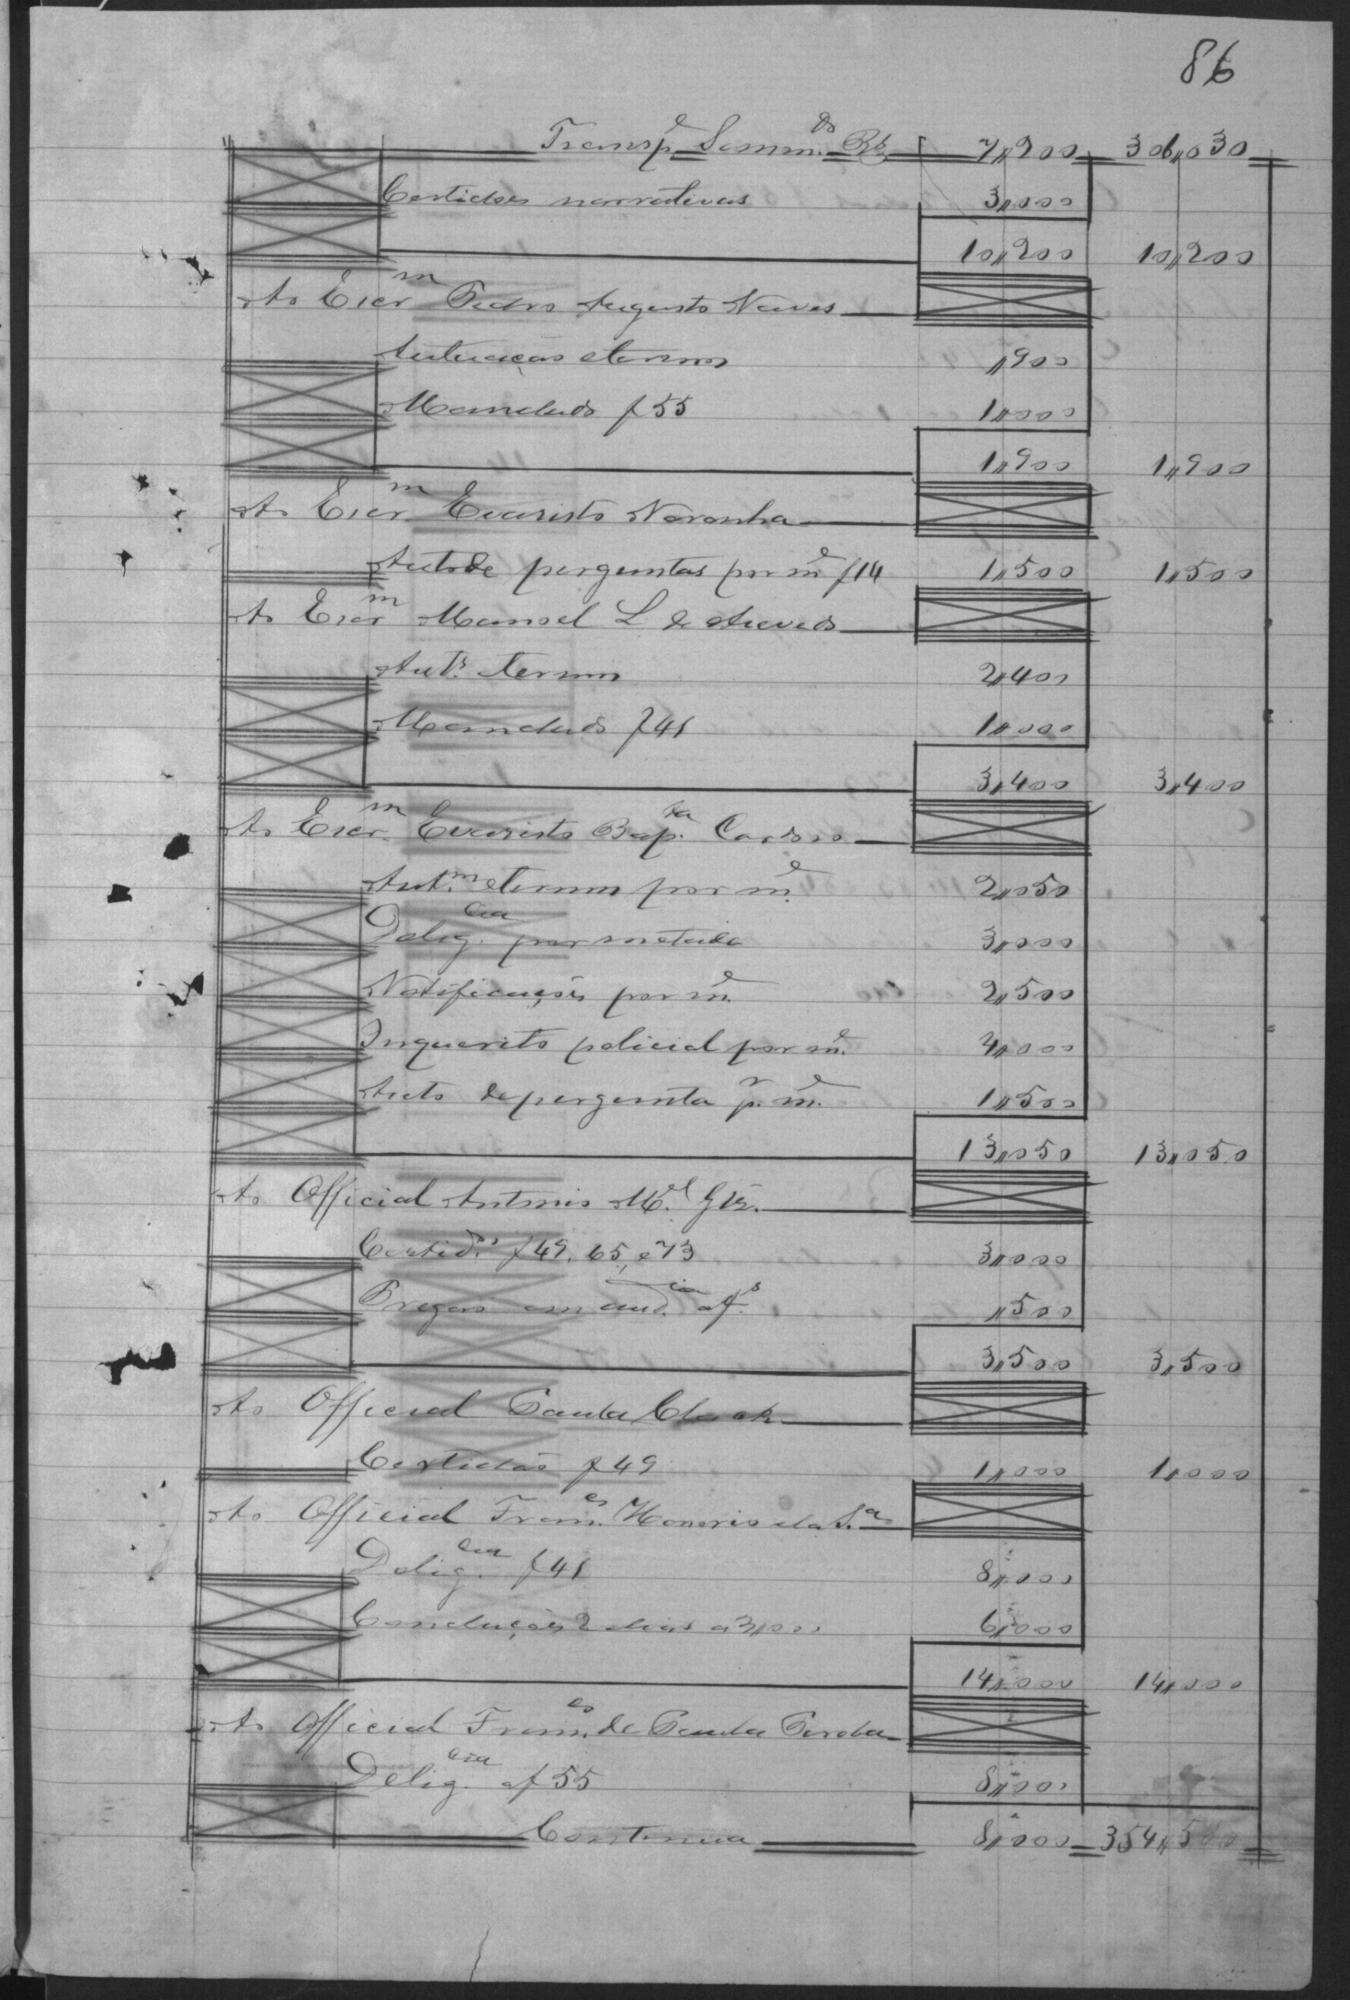 86
Transp.e Somm.do Rs 7,,200 306,,030
Certidões narrativas 3,,000
10,,200 10,,200
Ao Escr.m Pedro Augusto Neves
Autuação e termos ,,900
Mandado f 55 1,,000
1,,900 1,,900
Ao Escr.m Evaristo Noronha
Auto de perguntas por m.e f 14 1,,500 1,,500
Ao Escr.m Manoel L de Azevedo
Aut.s termos 2,,400
Mandado f 41 1,,000
3,,400 3,,400
Ao Escr.m Evaristo Bap.ta Cardoso
Aut.m e termos por m.e 2,,050
Delig.cia por metade 3,,000
Notificações por m.e 2,,500
Inquerito policial por m.e 4,,000
Auto de pergunta p.r m.e 1,,500
13,,050 13,,050
Ao Official Antonio M.el
Certid.es f 49, 65, e 73 3,,000
Pregão em aud.cia ,,500
3,,500 3,,500
Ao Official Paula
Certidão f 49 1,,000 1,,000
Ao Official Fran.co Honorio da S.a
Delig.cia f 41 8,,000
Conducção 2 dias a 3,,000 6,,000
14,,000 14,,000
Ao Official Fran.co de Paula
Delig.cia af 55 8,,000
Continua 8,,000 354,,5